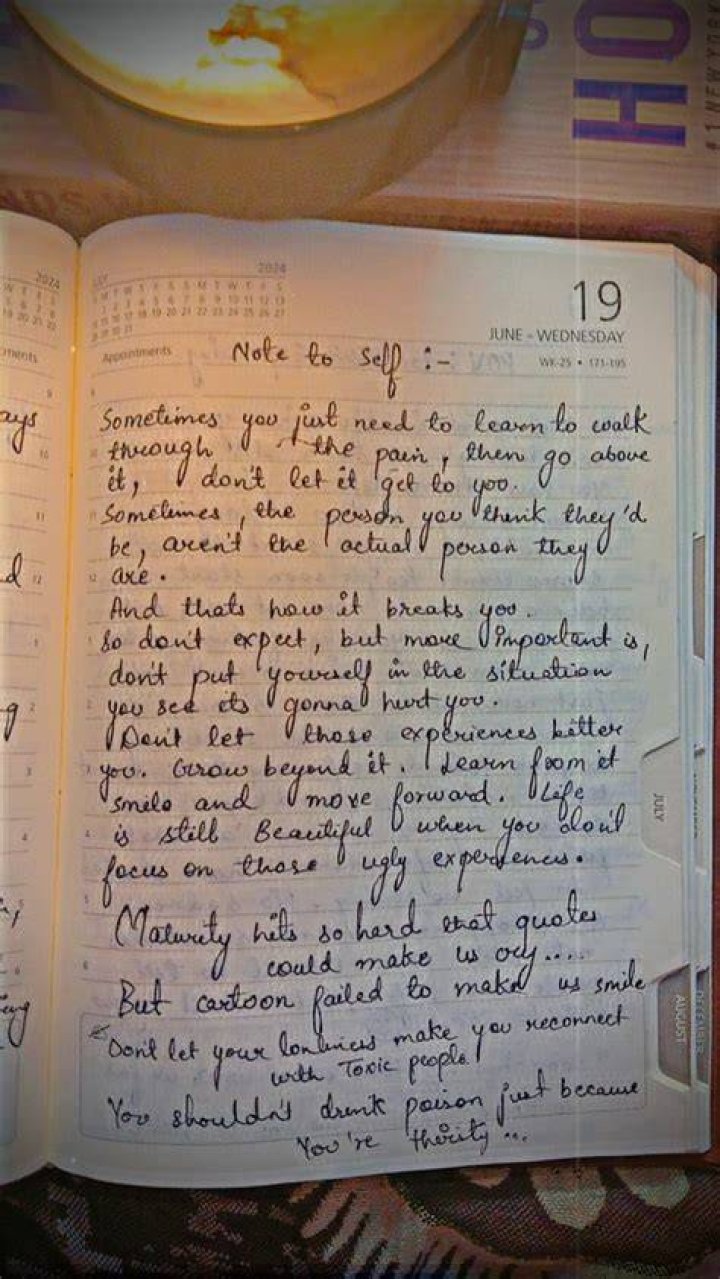 HO
#1 NEW YORK
2024
JULY 2024
19
JUNE - WEDNESDAY
WK-25 • 171-195
Appointments
Note to Self :-
Sometimes you just need to learn to walk
through the pain, then go above
it, don't let it get to you.
Sometimes, the person you think they'd
be, aren't the actual person they
are.
And thats how it breaks you.
So don't expect, but more important is,
don't put yourself in the situation
you see its gonna hurt you.
Don't let those experiences bitter
you. Grow beyond it. Learn from it
smile and move forward. Life
is still Beautiful when you don't
focus on those ugly experiences.
Maturity hits so hard that quotes
could make us cry....
But cartoon failed to make us smile
Don't let your loneliness make you reconnect
with Toxic people.
You shouldn't drink poison just because
You're thirsty...
JULY
AUGUST
DECEMBER